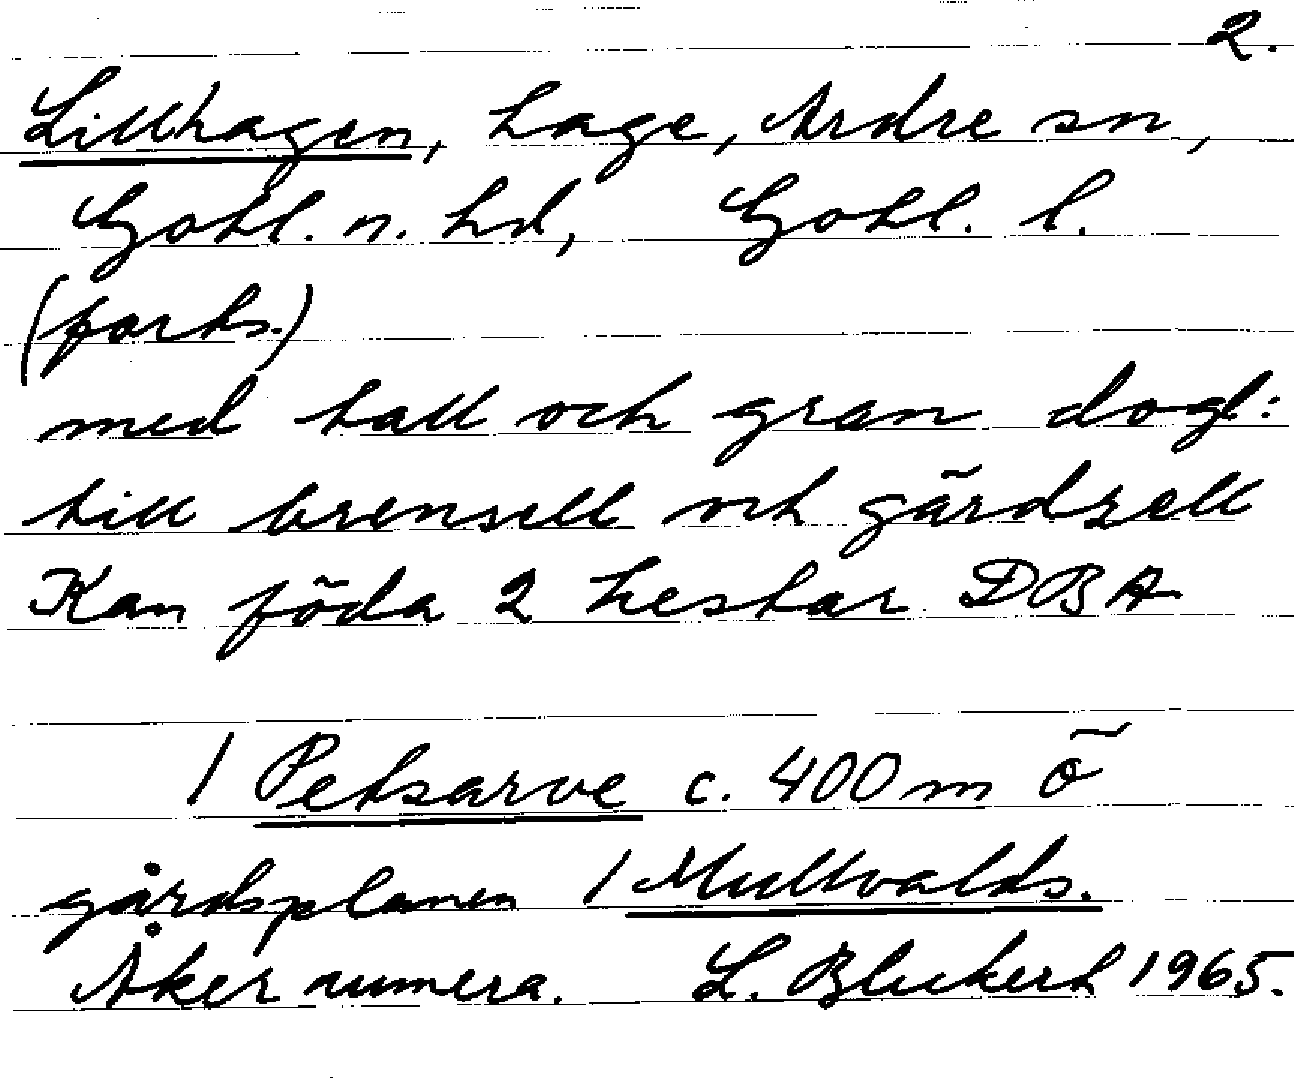 2.
Lillhagen, hage, Ardre sn,
Gotl. n. hd, Gotl. l.
(forts.)
med tall och gran dogl:
till brensell och gärdzell
Kan föda 2 hestar DBA
/ Petsarve c. 400 m ö
gårdsplanen / Mullvalds.
Åker numera. L. Bluckert 1965.